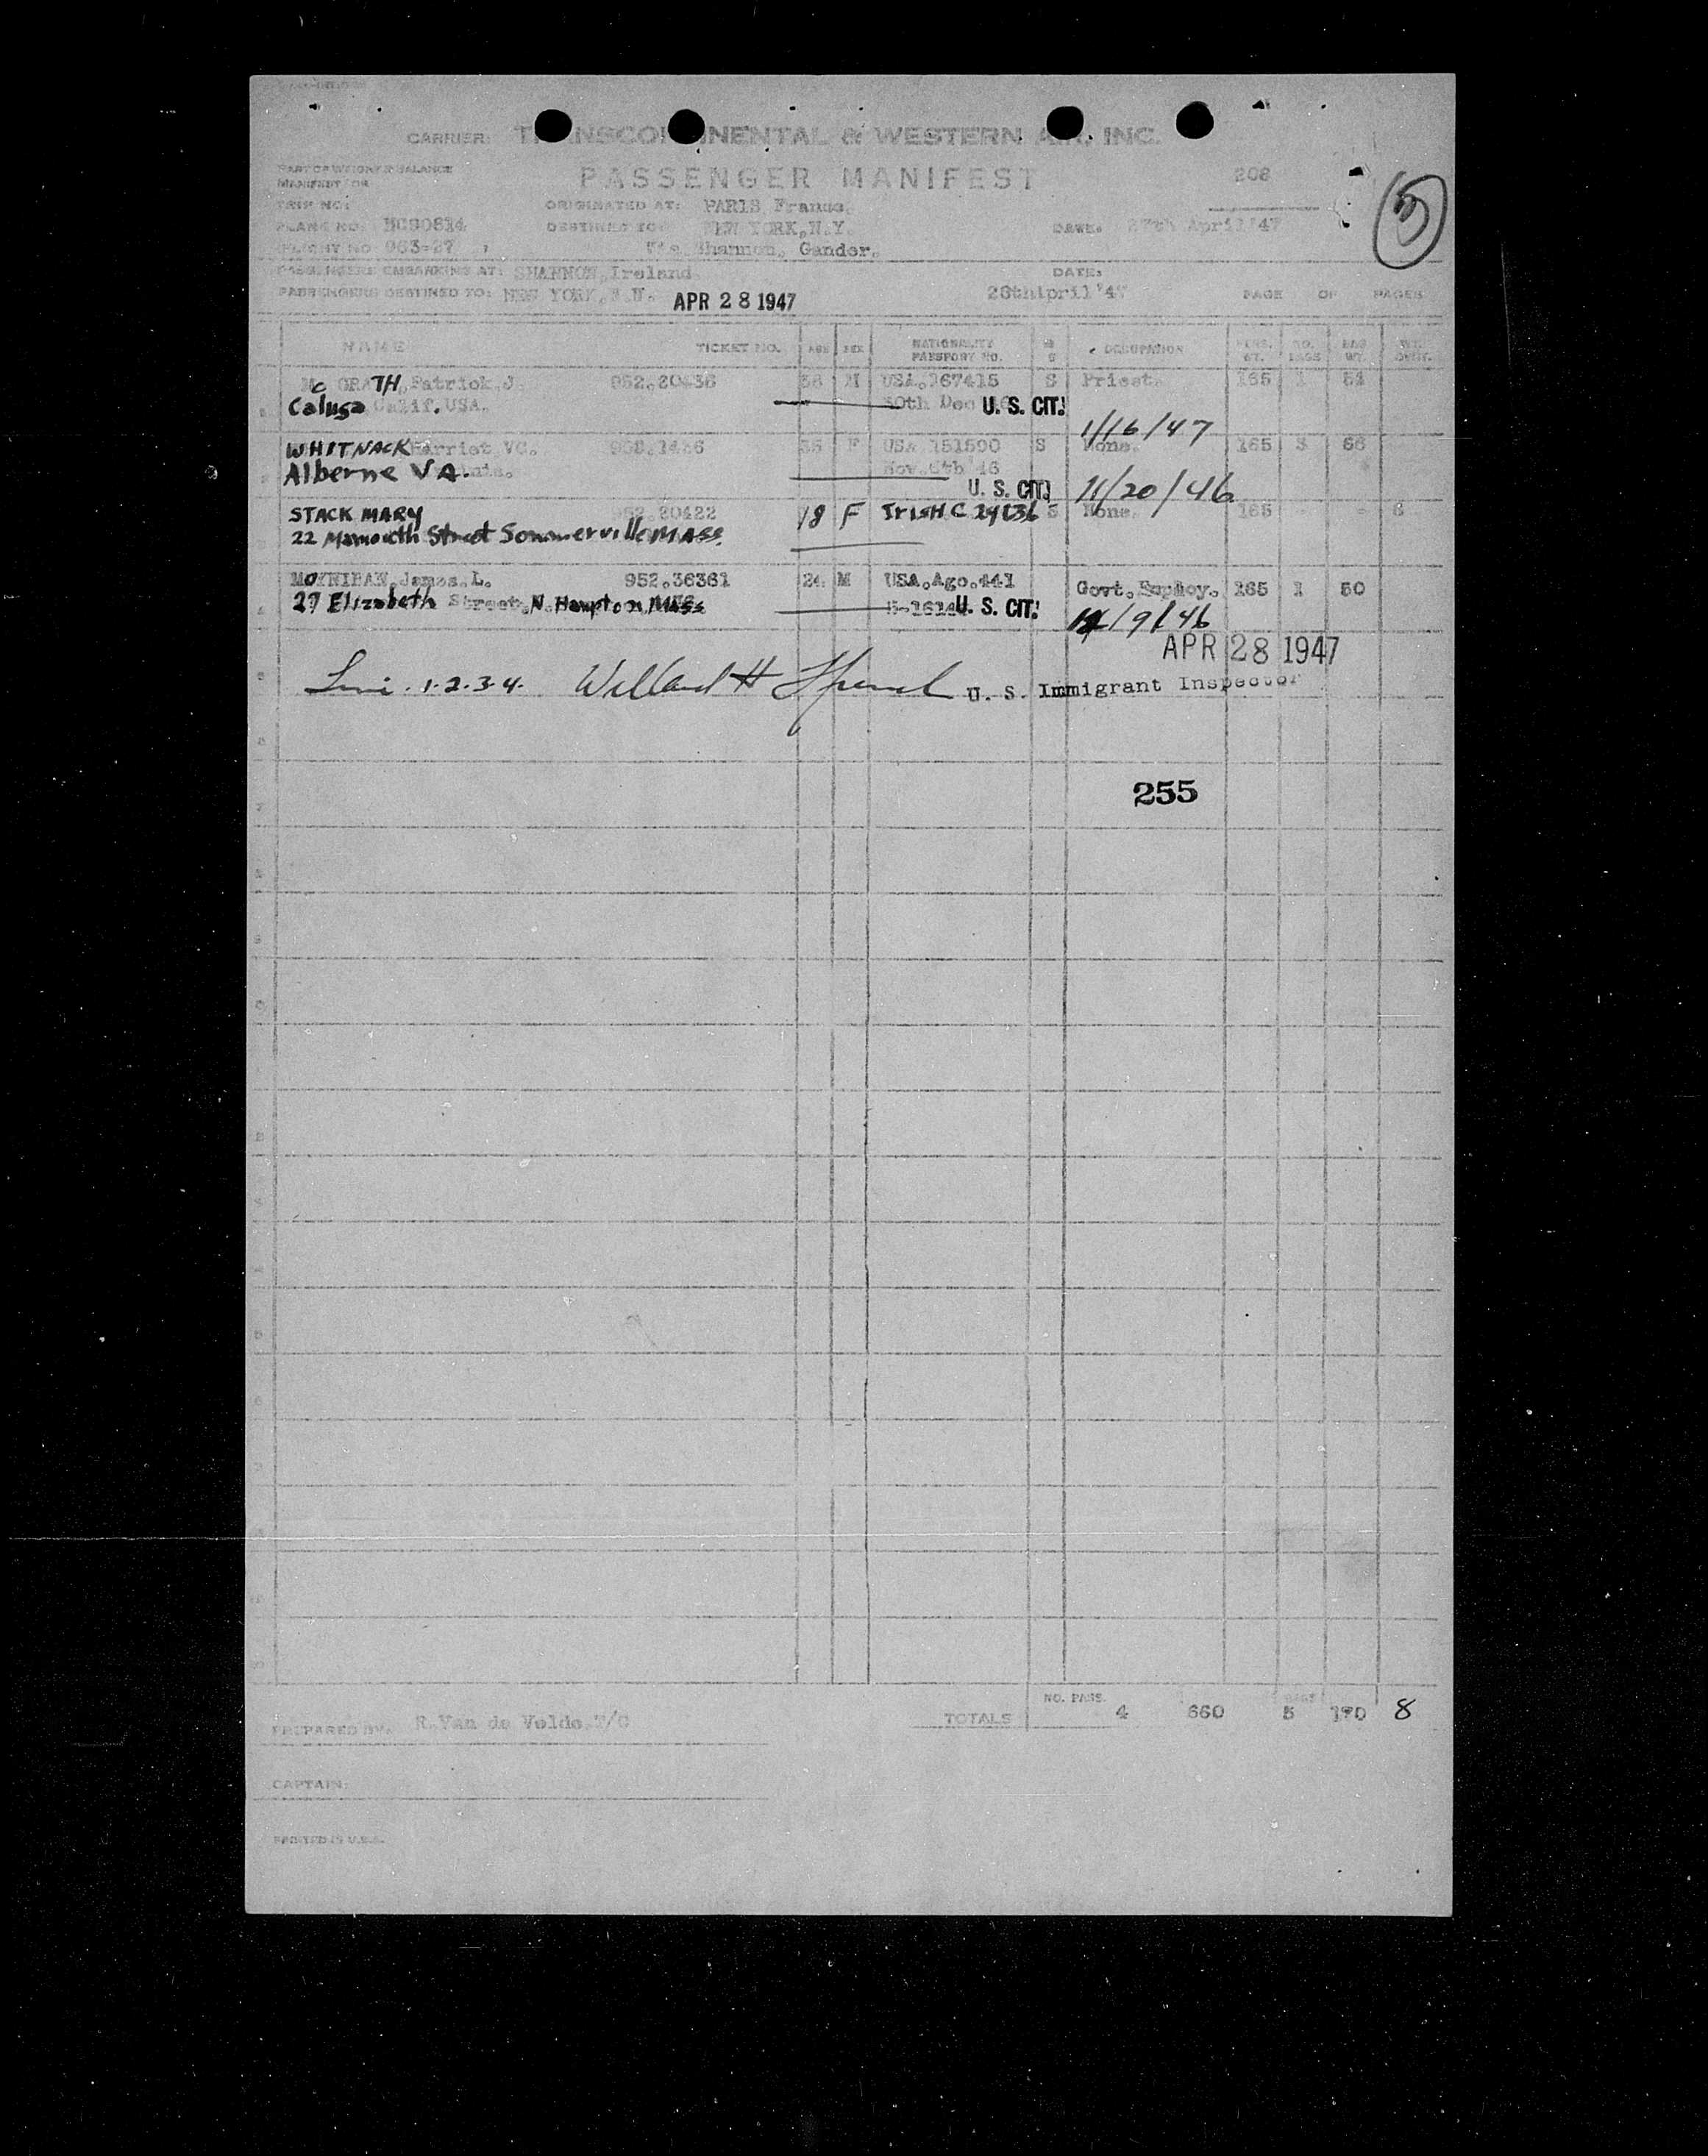 CARRIER: TRANSCONTINENTAL & WESTERN AIR, INC.
PART OF WEIGHT & BALANCE
MANIFEST FOR
PASSENGER MANIFEST 208
TRIP NO:
ORIGINATED AT: PARIS France.
PLANE NO: NC90814 DESTINED TO: NEW YORK, N.Y. DATE: 27th April '47
FLIGHT NO 963-27 Via Shannon, Gander.
PASSENGERS EMBARKING AT: SHANNON, Ireland DATE:
PASSENGERS DESTINED TO: NEW YORK, APR 28 1947 28th April '47 PAGE OF PAGES
NAME TICKET NO. AGE SEX NATIONALITY PASSPORT NO. OCCUPATION
Mc GRATH, Patrick, J. 952,20436 M USA, 167415 S Priest. 165 1 54
Calusa Calif. USA. 30th Dec U. S. CIT.
1/16/47
WHITNACK Harriet VC. F USA 151590 S None. 165 3 66
Alberne VA. Nov. '46
U. S. CIT. 11/20/46
STACK MARY 952,20422 18 F IrisH C S None. 165 - - 8
22 Street Sommerville MASS.
MOYNIHAN, James, L. 952,36361 24 M USA, Ago, 441 Govt. Employ. 165 1 50
27 Elizabeth Street, N. Hampton, Mass U. S. CIT.
/9/46
APR 28 1947
1-2-3-4. Willard H U. S. Immigrant Inspector
255
NO. PASS. BAGS
PREPARED BY: R. Van de Velde, T/C TOTALS 4 660 5 170 8
CAPTAIN:
PRINTED IN U.S.A.